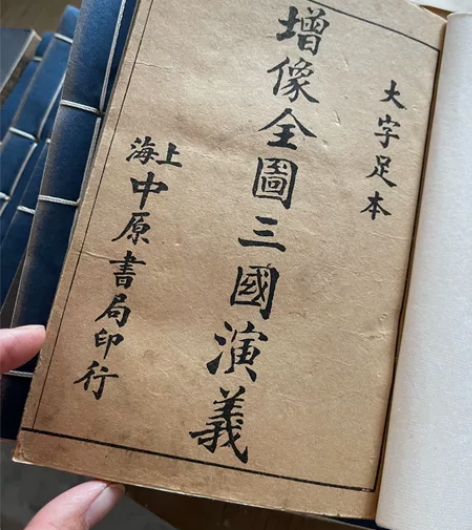 大字足本
增像全圖三國演義
上海中原書局印行